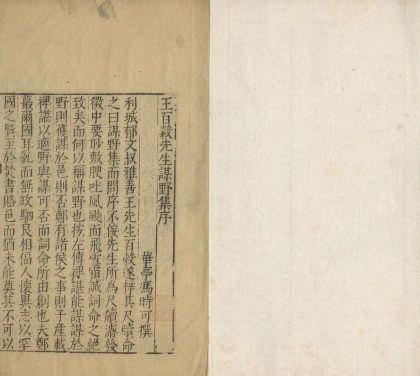 王百穀先生謀野集序
華亭馮時可撰
利城郁文叔雅善王先生百穀遂梓其尺牘命
之曰謀野集而問序不佞先生所為尺牘濬發
徵中要聆敷腴吐風飈而飛雪宿誠詞命之絕
致矣而何以稱謀野也按左傳裨諶能謀謀於
野則獲謀於邑則否鄭有諸侯之事則子產載
裨諶以適野與謀可否而詞命所由創也夫鄭
蕞爾國耳豈而無攻駟良相傾人懷異志以罕
國之
至於焚書賂邑而猶未能奠其不可以